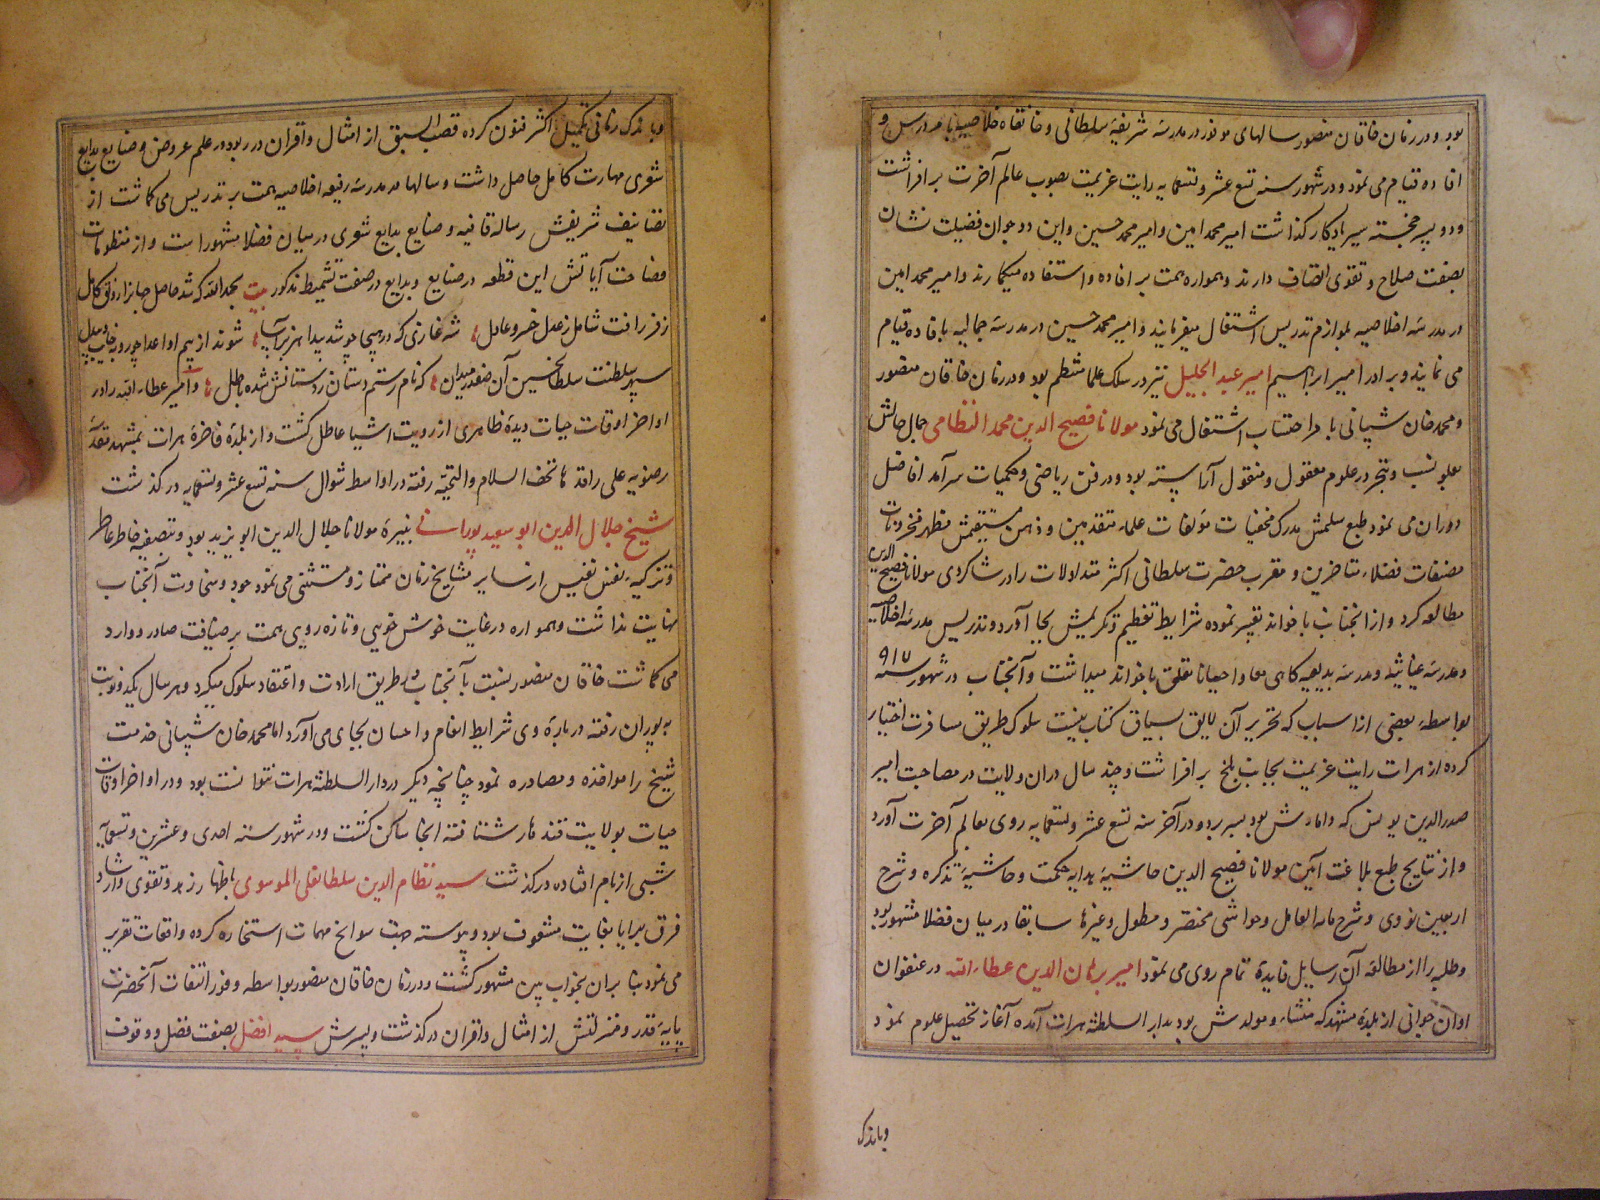 بود و در زمان خاقان منصور سالهای موفور در مدرسهٔ شریفهٔ سلطانی و خانقاه خلاصیه بامر درس و
افاده قیام می نمود و در شهور سنه تسع عشر و تسعمایه رایت عزیمت بصوب عالم آخرت برافراشت
و دو پسر خجسته سیر یادکار کذاشت امیر محمد امین و امیر محمد حسین و این دو جوان فضیلت نشان
بصفت صلاح و تقوی اتصاف دارند و همواره همت بر افاده و استفاده میکمارند و امیر محمد امین
در مدرسه اخلاصیه بلوازم تدریس اشتغال میفرمایند و امیر محمد حسین در مدرسهٔ جمالیه بافاده قیام
می نمایند و برادر امیر ابراهیم امیر عبد الجلیل نیز در سلک علما منتظم بود و در زمان خاقان منصور
و محمد خان شیبانی بامر احتساب اشتغال می نمود مولانا فصیح الدین محمد النظامی جمال حالش
بعلو نسب و تبحر در علوم معقول و منقول آراسته بود و در فن ریاضی و حکمیات سرآمد افاضل
دوران می نمود طبع سلیمش مدرک مخفیات مؤلفات علماء متقدمین و ذهن مستقیمش مظهر مخزونات
مصنفات فضلاء متاخرین و مقرب حضرت سلطانی اکثر متداولات را در شاکردی مولانا فصیح الدین
مطالعه کرد و از انجناب باخواند تعبیر نموده شرایط تعظیم و تکریمش بجا آورد و تدریس مدرسه اخلاصیه
و مدرسه غیاثیه و مدرسه بدیعیه کاهی معا و احیانا تعلق باخواند میداشت و آنجناب در شهور سنه ۹۱۷
بواسطه بعضی از اسباب که تحریر آن لایق بسیاق کتاب نیست سلوک طریق مسافرت اختیار
کرده از هرات رایت عزیمت بجانب بلخ برافراشت و چند سال دران ولایت در مصاحبت امیر
صدر الدین یونس که دامادش بود بسر برد و در آخر سنه تسع عشر و تسعمایه روی بعالم آخرت آورد
و از نتایج طبع بلاغت آیین مولانا فصیح الدین حاشیهٔ هدایه حکمت و حاشیهٔ تذکره و شرح
اربعین نووی و شرح مایه العامل و حواشی مختصر و مطول و غیرها سابقا در میان فضلا مشهور بود
و طلبه را از مطالعه آن رسایل فایدهٔ تمام روی می نمود امیر برهان الدین عطاء الله در عنفوان
اوان جوانی از بلدهٔ مشهد که منشاء و مولدش بود بدار السلطنه هرات آمده آغاز تحصیل علوم نمود
و باندک
و باندک زمانی تکمیل اکثر فنون کرده قصب السبق از امثال و اقران در ربود و در علم عروض و صنایع بدایع
شعری مهارت کامل حاصل داشت و سالها در مدرسه رفیعه اخلاصیه همت بر تدریس می کماشت از
تصانیف شریفش رساله قافیه و صنایع بدایع شعری در میان فضلا مشهور است و از منظومات
فصاحت آیاتش این قطعه در صنایع و بدایع در صفت تسمیط مذکور بیت بحمد الله که شد حاصل جهانرا رونق کامل
ز فر رافت شامل ز عدل خسرو عادل شه غازی که در هیجا چو شد پیدا هزبرآسا شوند از بیم او اعدا چو روبه خایف و بیدل
سپهر سلطنت سلطان حسین آن صفدر میدان که نام رستم دستان ز دستانش شده باطل و امیر عطاء الله را در
اواخر اوقات حیات دیدهٔ ظاهری از رویت اشیا عاطل کشت و از بلدهٔ فاخرهٔ هرات بمشهد مقدسهٔ
رضویه علی راقدها تحف السلام و التحیه رفته در اواسط شوال سنه تسع عشر و تسعمایه در کذشت
شیخ جلال الدین ابو سعید پورانی نبیرهٔ مولانا جلال الدین ابو یزید بود و بتصفیه خاطر عاطر
و تزکیهٔ نفس نفیس از سایر مشایخ زمان ممتاز و مستثنی می نمود جود و سخاوت آنجناب
نهایت نداشت و همواره در غایت خوش خویی و تازه رویی همت بر ضیافت صادر و وارد
می کماشت خاقان منصور نسبت بآنجناب بطریق ارادت و اعتقاد سلوک میکرد و هر سال یکدو نوبت
به پوران رفته در بارهٔ وی شرایط انعام و احسان بجای می آورد اما محمد خان شیبانی خدمت
شیخ را مواخذه و مصادره نمود چنانچه دیکر در دار السلطنه هرات نتوانست بود و در اواخر اوقات
حیات بولایت قندهار شتافته انجا ساکن کشت و در شهور سنه احدی و عشرین و تسعمایه
شبی از بام افتاده در کذشت سید نظام الدین سلطانعلی الموسوی باظهار زهد و تقوی و ارشاد
فرق برایا بغایت مشعوف بود و پیوسته جهت سوانح مهمات استخاره کرده واقعات تقریر
می نمود بنا بران بخواب بین مشهور کشت و در زمان خاقان منصور بواسطه وفور التفات آنحضرت
پایهٔ قدر و منزلتش از امثال و اقران در کذشت و پسرش سید افضل بصفت فضل و وقوف